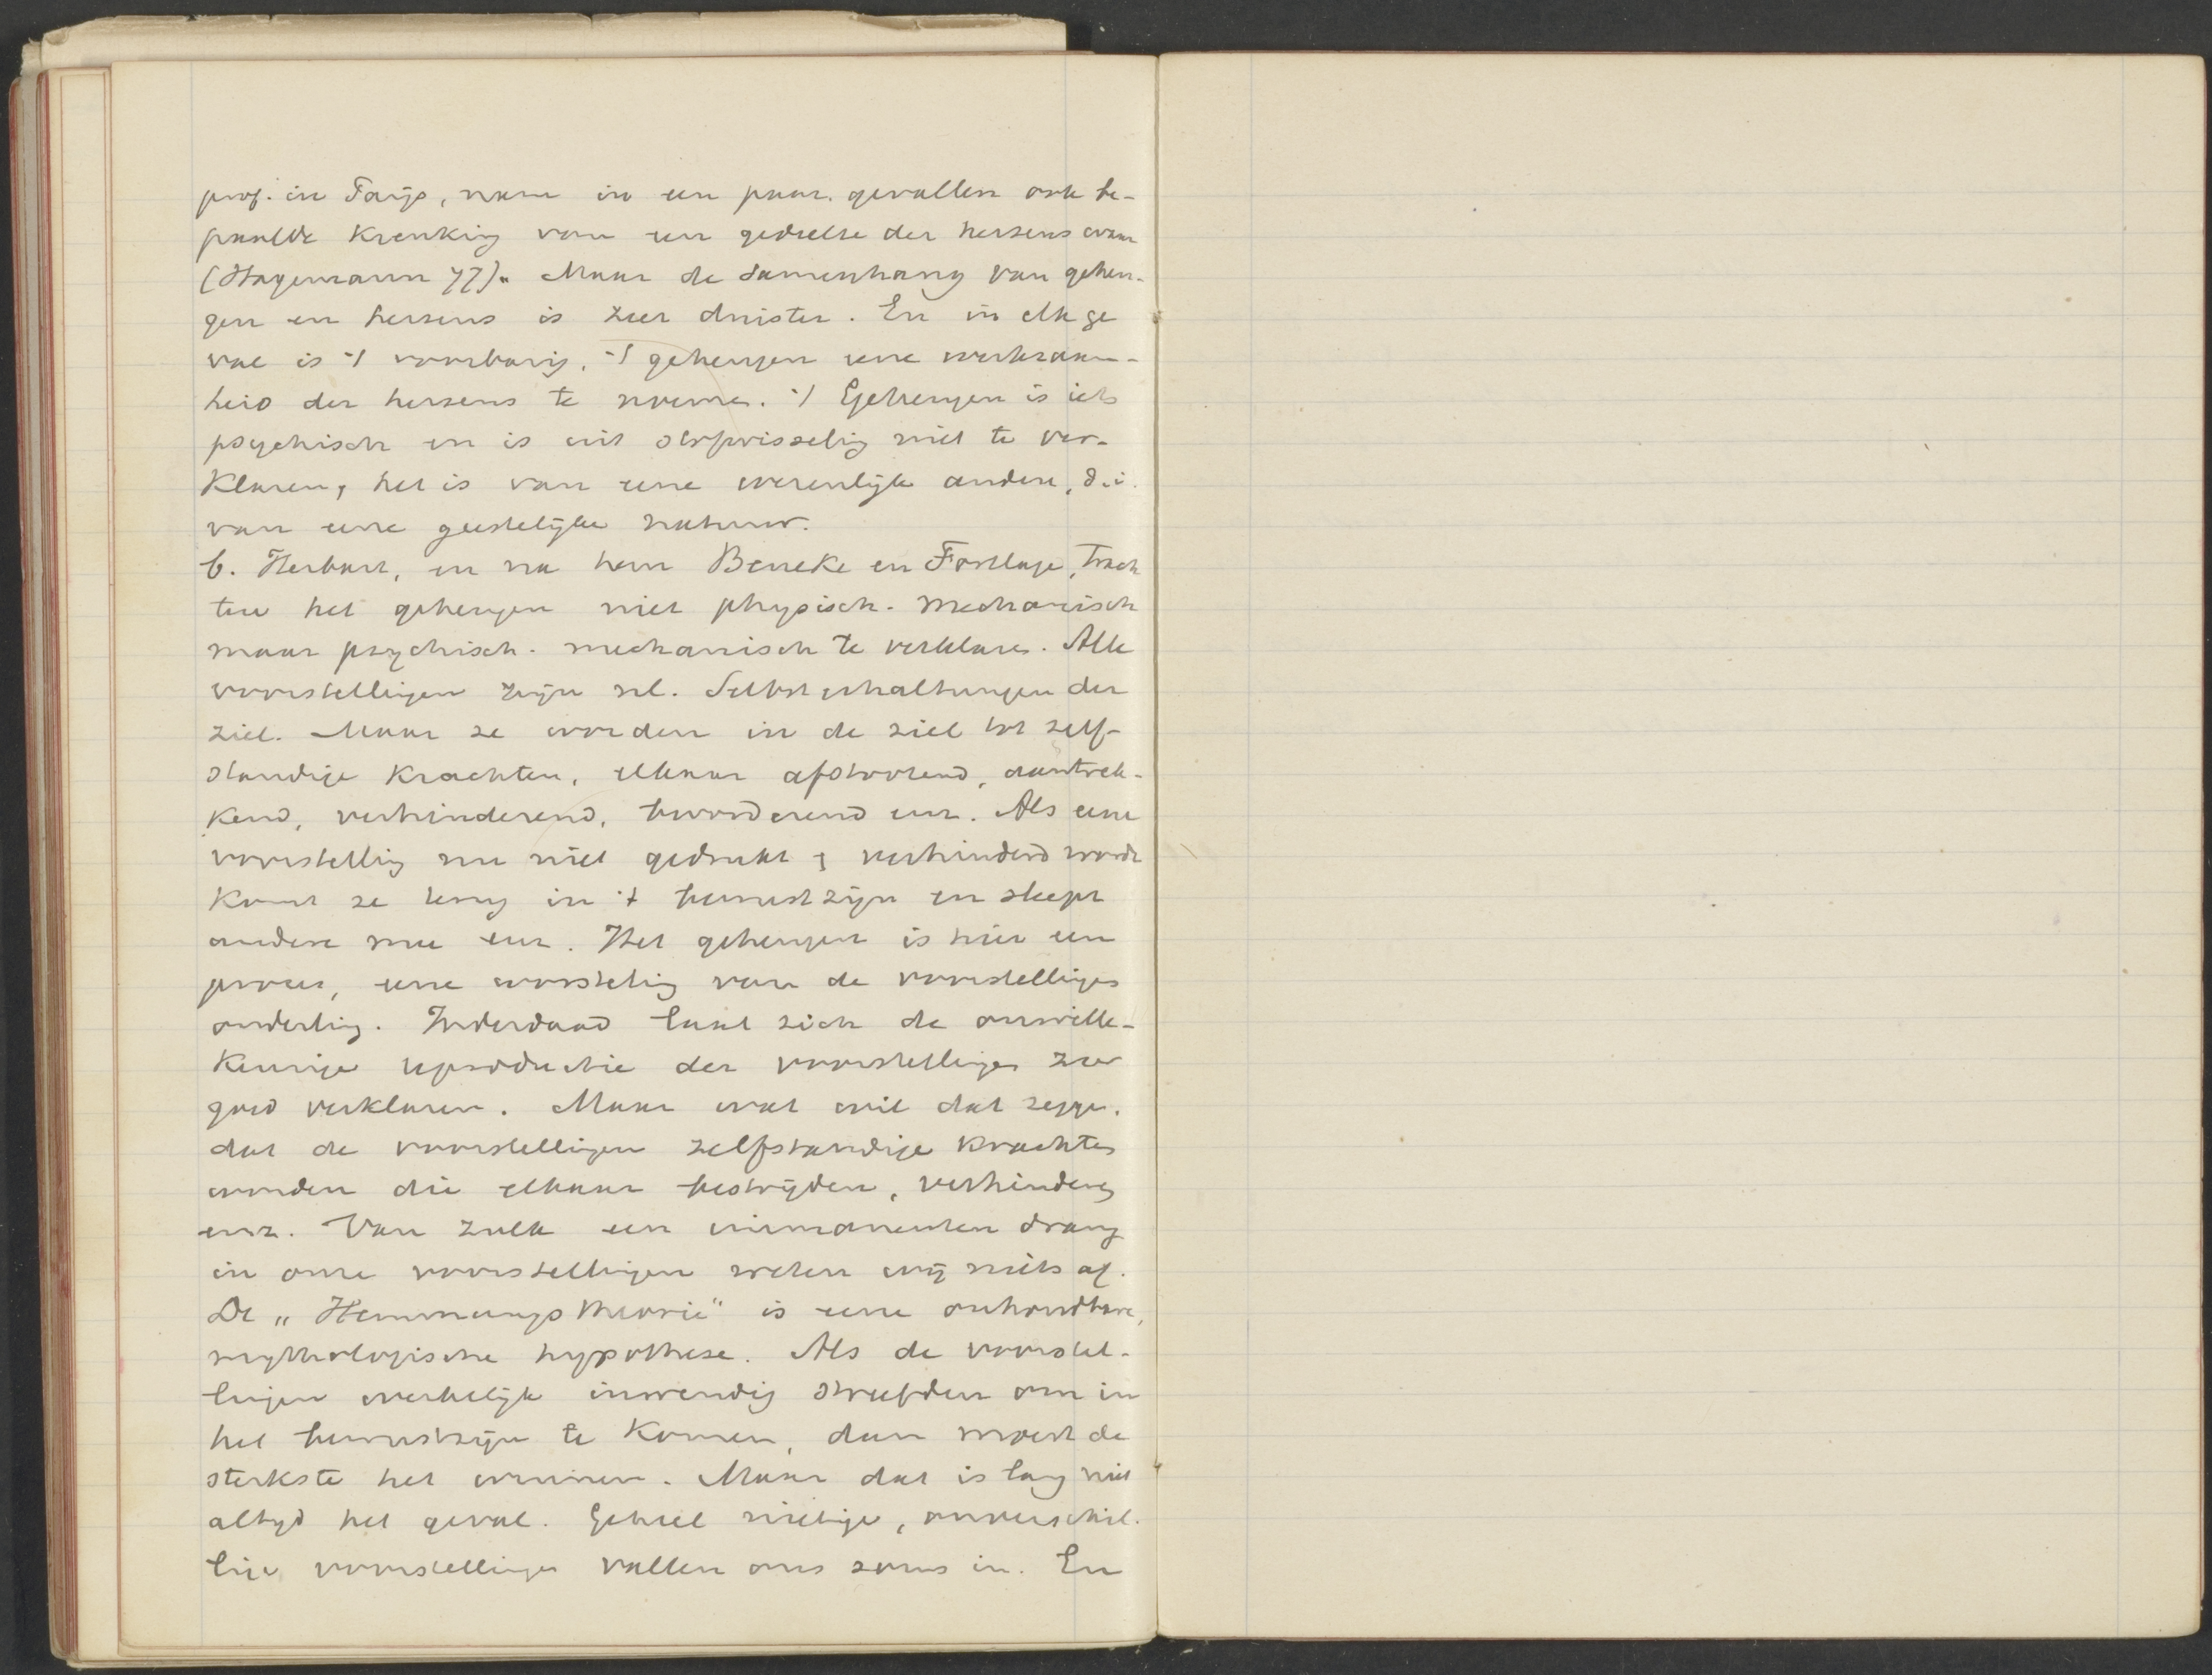 prof. in Parijs, nam in een paar gevallen ook be-
paalde krenking van een gedeelte der hersens waar
(Hagemann 77). Maar de samenhang van geheu-
gen en hersens is zeer duister. En in elk ge
val is 't voorbarig, 't geheugen eene werkzaam-
heid der hersens te noemen. 't Geheugen is iets
psychisch en is uit stofwisseling niet te ver-
klaren, het is van eene wezenlijk andere, d.i.
van eene geestelijke natuur.
b. Herbart, en na hem Beneke en Fortlage, trach
ten het geheugen niet physisch-mechanisch
maar psychisch-mechanisch te verklaren. Alle
voorstellingen zijn nl. Selbsterhaltungen der
ziel. Maar ze worden in de ziel tot zelf-
standige krachten, elkaar afstootend, aantrek-
kend, verhinderend, bevorderend enz. Als eene
voorstelling nu niet gedrukt & verhinderd wordt
komt ze terug in 't bewustzijn en sleept
andere mee enz. Het geheugen is hier een
proces, eene worsteling van de voorstellingen
onderling. Inderdaad laat zich de onwille-
keurige reproductie der voorstellingen zoo
goed verklaren. Maar wat wil dat zeggen,
dat de voorstellingen zelfstandige krachten
worden die elkaar bestrijden, verhinderen
enz. Van zulk een immanenten drang
in onze voorstellingen weten wij niets af.
De „Hemmungstheorie" is eene onhoudbare,
mythologische hypothese. Als de voorstel-
lingen werkelijk inwendig streefden om in
het bewustzijn te komen, dan moest de
sterkste het winnen. Maar dat is lang niet
altijd het geval. Geheel nietige, onverschil-
lige voorstellingen vallen ons soms in. En